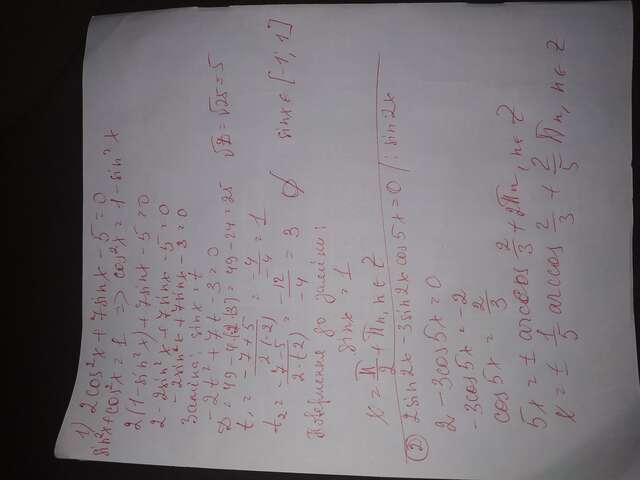 1) 2cos²x + 7sinx - 5 = 0
sin²x + cos²x = 1 => cos²x = 1 - sin²x
2(1 - sin²x) + 7sinx - 5 = 0
2 - 2sin²x + 7sinx - 5 = 0
-2sin²x + 7sinx - 3 = 0
Заміна: sinx = t
-2t² + 7t - 3 = 0
D = 49 - 4·(2)(3) = 49 - 24 = 25 √D = √25 = 5
t₁ = (-7+5)/(2·(-2)) = 4/-4 = 1
t₂ = (-7-5)/(2·(-2)) = -12/-4 = 3 ∅ sinx ∈ [-1; 1]
Повернення до заміни:
sinx = 1
x = π/2 + πn, n ∈ Z
2) 2sin2x - 3sin2x cos5x = 0 /: sin2x
2 - 3cos5x = 0
-3cos5x = -2
cos5x = 2/3
5x = ± arccos 2/3 + 2πn, n ∈ Z
x = ± 1/5 arccos 2/3 + 2/5 πn, n ∈ Z